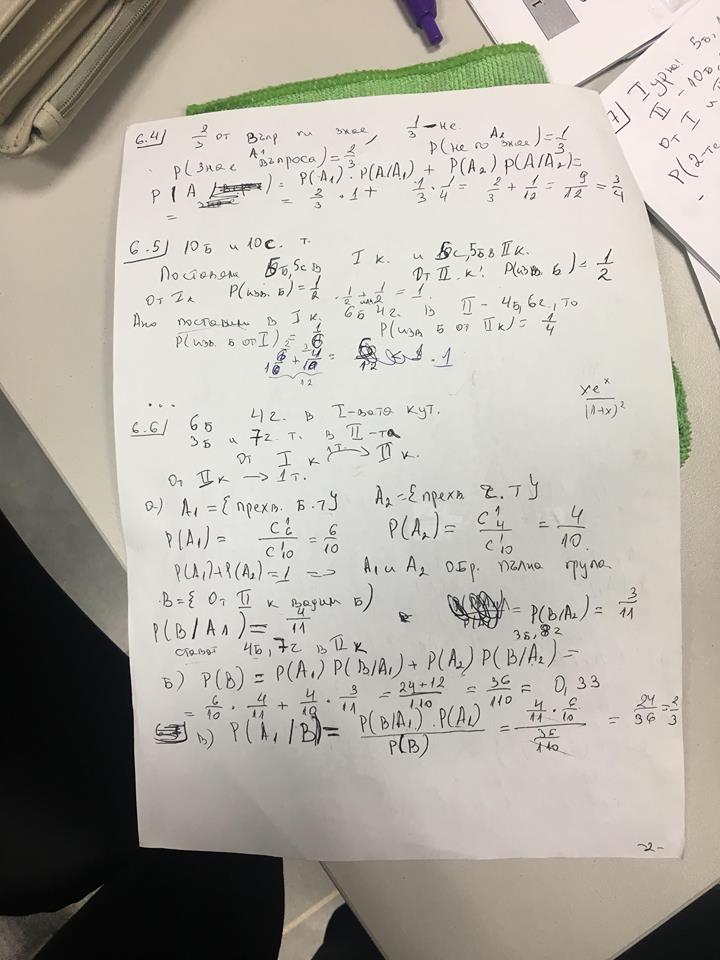 6.4) 2/3 от въпр ги знае, 1/3 – не.
P(знае A1 въпроса) = 2/3 P(не го знае A2) = 1/3
P(A) = P(A1) . P(A/A1) + P(A2) P(A/A2) =
= 2/3 . 1 + 1/3 . 1/4 = 2/3 + 1/12 = 9/12 = 3/4
6.5) 10б и 10с. т.
Поставени 5б, 5с в I к. и 5с, 5б в II к.
От I к P(изв. б) = 1/2 От II к: P(изв. б) = 1/2
1/2 + 1/2 = 1.
Ако поставим в I к. 6б 4г. в II – 4б, 6г, то
P(изв б от I) = P(изв. б от II к) = 1/4
12
...
6.6) 6б 4г. в I-вата кут.
3б и 7г. т. в II-та
От I к 1т. → II к.
От II к → 1 т.
а) A1 = {прехв. б. т} A2 = {прехв. г. т}
P(A1) = C¹6 / C¹10 = 6/10 P(A2) = C¹4 / C¹10 = 4/10.
P(A1) + P(A2) = 1 => A1 и A2 обр. пълна група
B = {От II к вадим б}
P(B/A1) = 4/11 = P(B/A2) = 3/11
стават 4б, 7г в II к 3б, 8г
б) P(B) = P(A1) P(B/A1) + P(A2) P(B/A2) =
= 6/10 . 4/11 + 4/10 . 3/11 = 24+12/110 = 36/110 = 0,33
в) P(A1/B) = P(B/A1) . P(A1) / P(B) = 4/11 . 6/10 / 36/110 = 24/36 = 2/3
xeˣ / (1+x)²
-2-
7) I урна:
II - 10б
От I
P(2-те